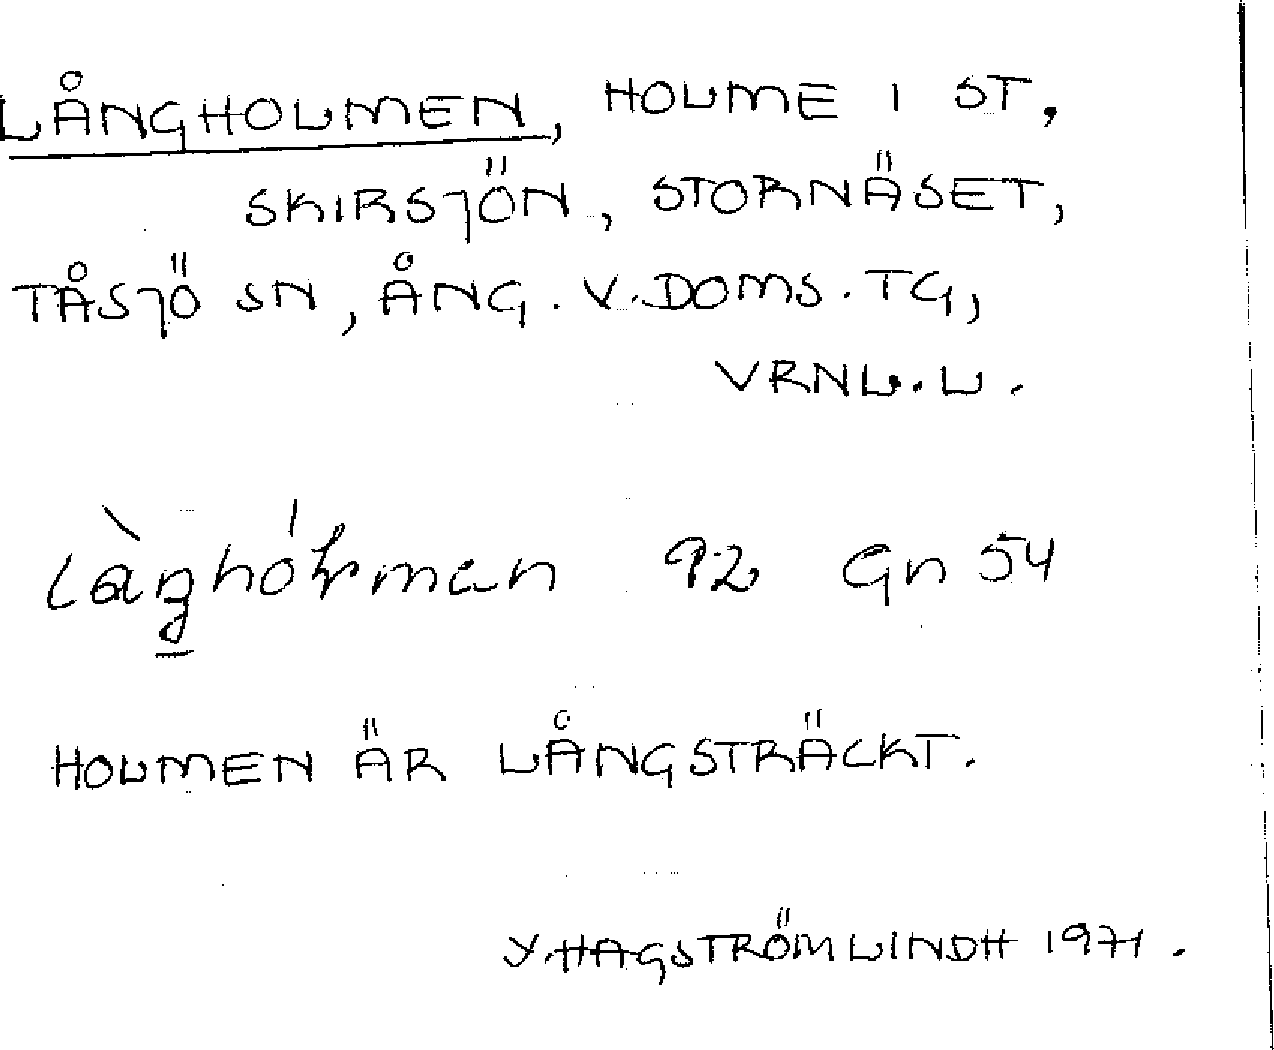 LÅNGHOLMEN, HOLME I ST.
SKIRSJÖN, STORNÄSET,
TÅSJÖ SN, ÅNG. V. DOMS. TG,
VRNL. L.
92 Gn 54
HOLMEN ÄR LÅNGSTRÄCKT.
Y. HAGSTRÖM LINDH 1971.